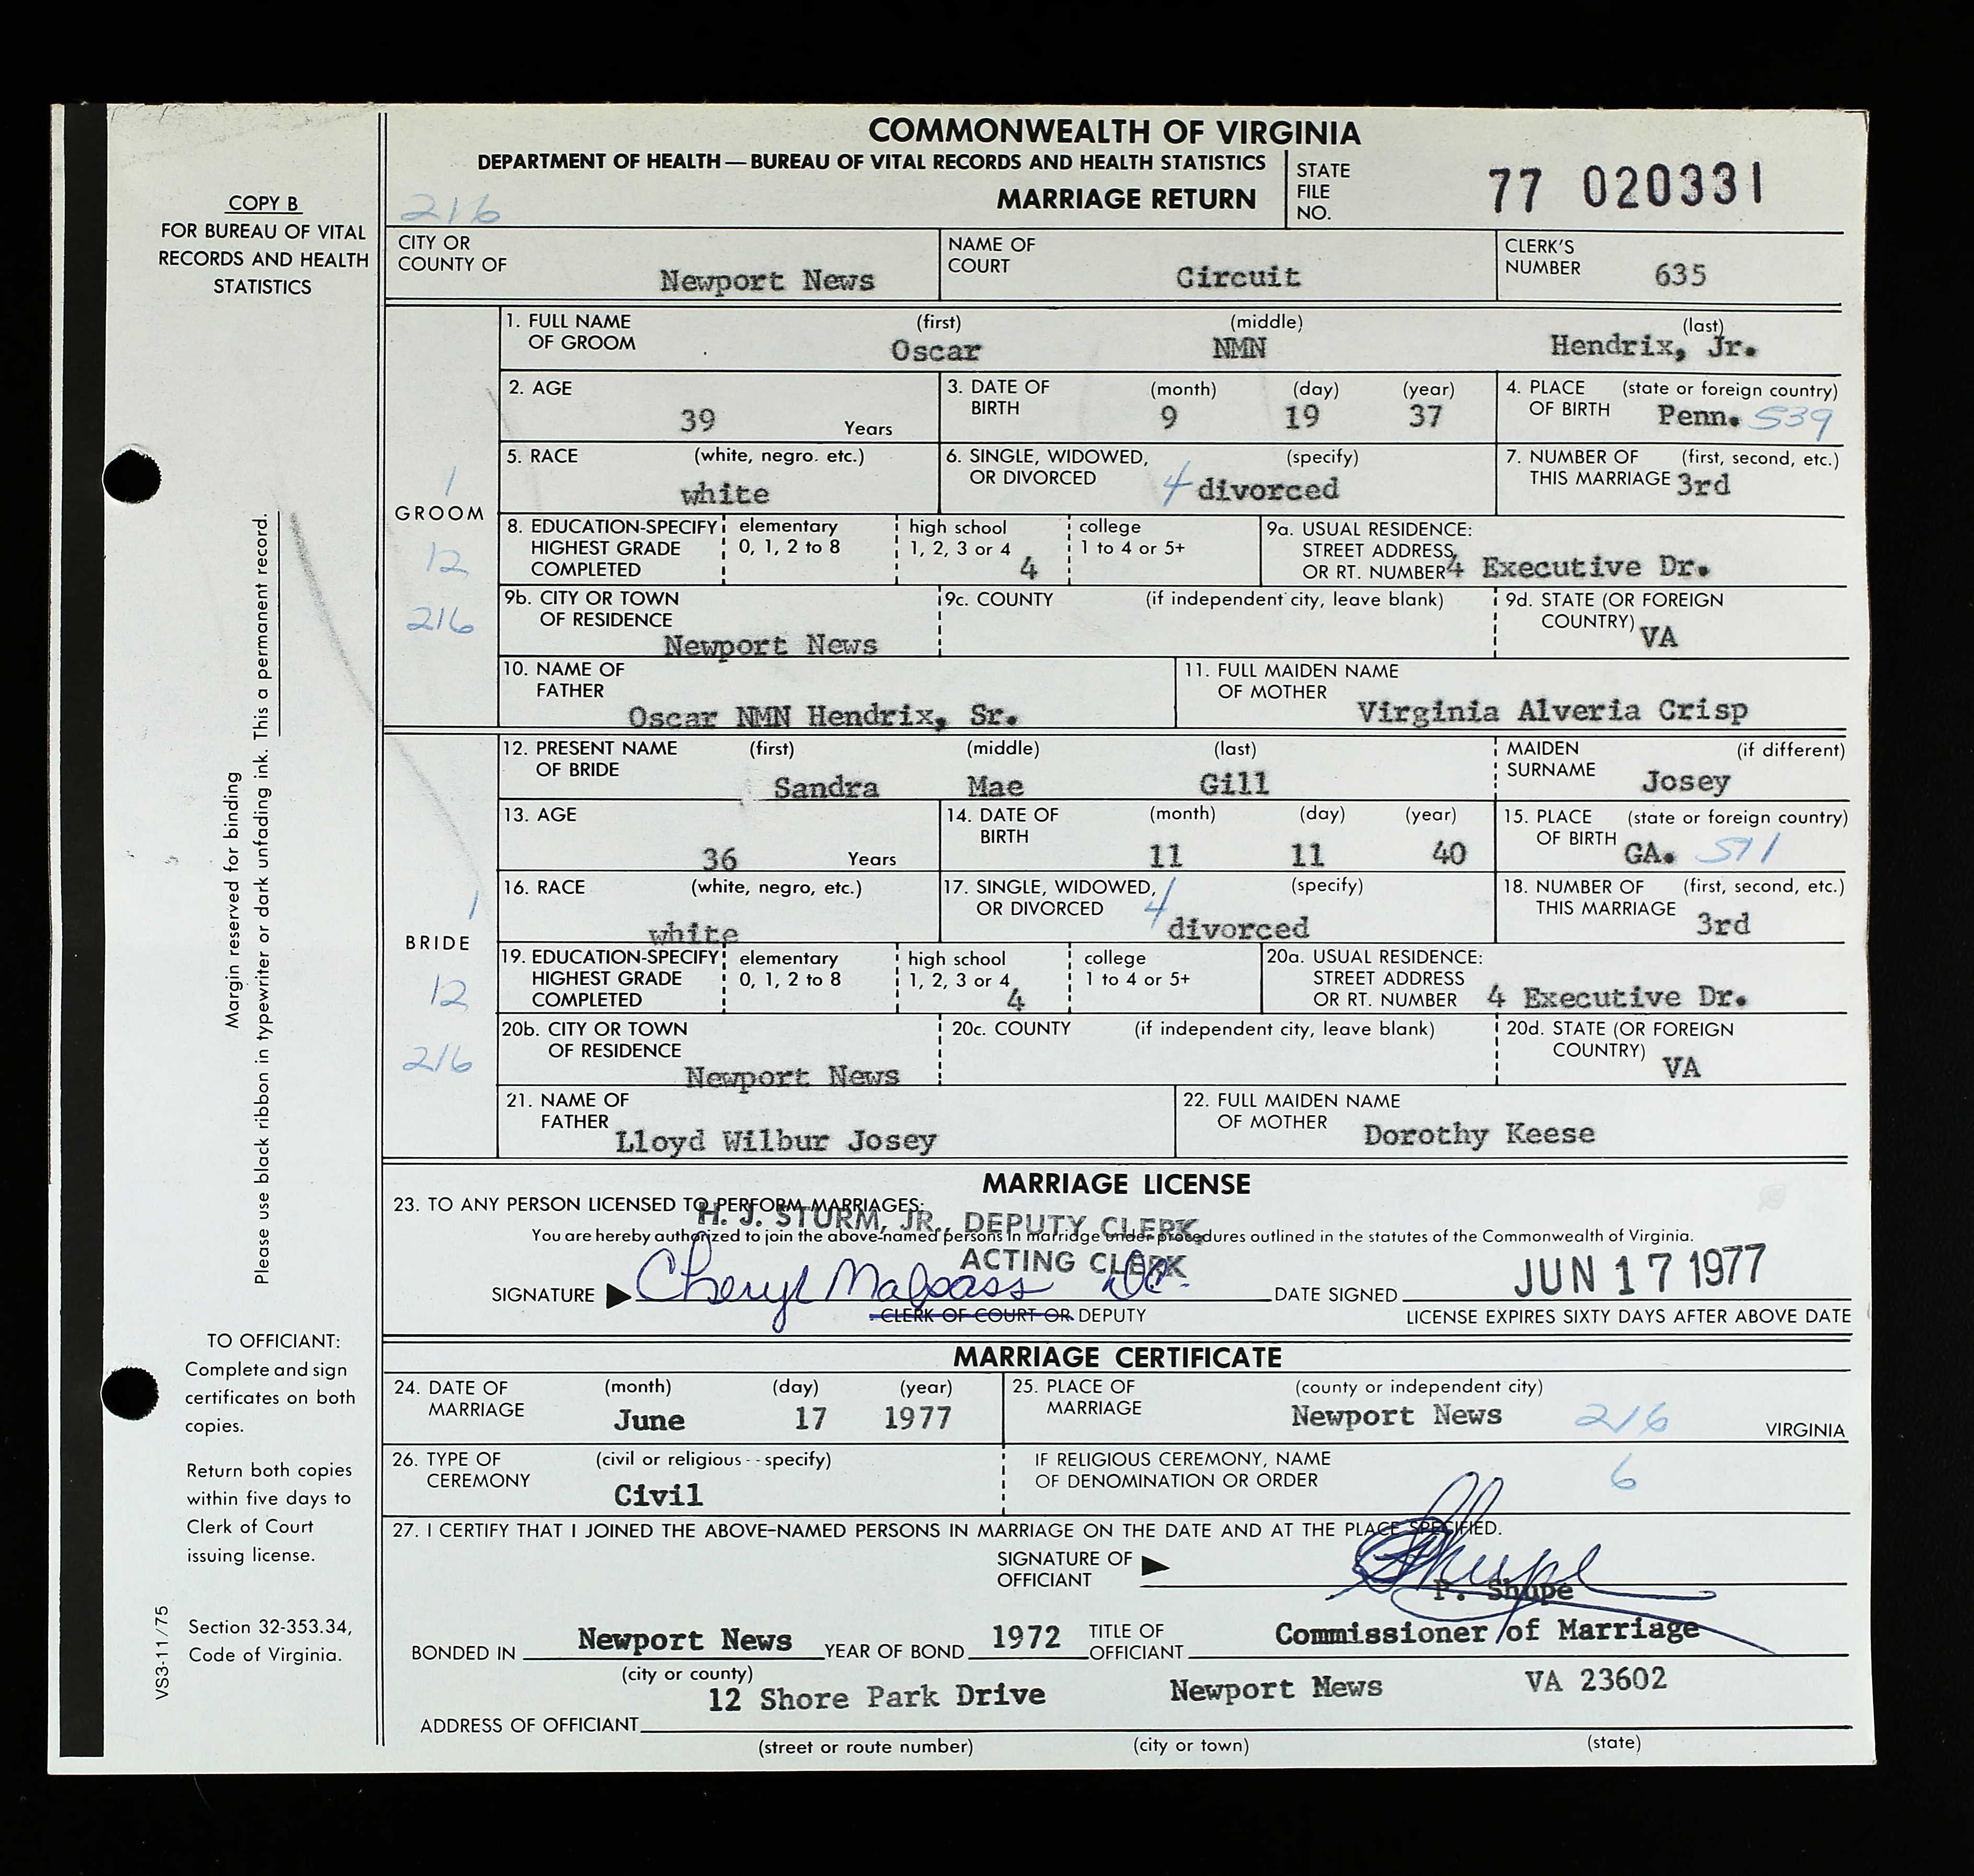 COMMONWEALTH OF VIRGINIA
DEPARTMENT OF HEALTH — BUREAU OF VITAL RECORDS AND HEALTH STATISTICS
MARRIAGE RETURN
STATE FILE NO. 77 020331
216
COPY B
FOR BUREAU OF VITAL
RECORDS AND HEALTH
STATISTICS
CITY OR COUNTY OF Newport News
NAME OF COURT Circuit
CLERK'S NUMBER 635
GROOM
1
12
216
1. FULL NAME OF GROOM (first) Oscar (middle) NMN (last) Hendrix, Jr.
2. AGE 39 Years
3. DATE OF BIRTH (month) 9 (day) 19 (year) 37
4. PLACE OF BIRTH (state or foreign country) Penn. 539
5. RACE (white, negro. etc.) white
6. SINGLE, WIDOWED, OR DIVORCED (specify) 4 divorced
7. NUMBER OF THIS MARRIAGE (first, second, etc.) 3rd
8. EDUCATION-SPECIFY HIGHEST GRADE COMPLETED elementary 0, 1, 2 to 8 high school 1, 2, 3 or 4 4 college 1 to 4 or 5+
9a. USUAL RESIDENCE: STREET ADDRESS OR RT. NUMBER 4 Executive Dr.
9b. CITY OR TOWN OF RESIDENCE Newport News
9c. COUNTY (if independent city, leave blank)
9d. STATE (OR FOREIGN COUNTRY) VA
10. NAME OF FATHER Oscar NMN Hendrix, Sr.
11. FULL MAIDEN NAME OF MOTHER Virginia Alveria Crisp
BRIDE
1
12
216
12. PRESENT NAME OF BRIDE (first) Sandra (middle) Mae (last) Gill
MAIDEN SURNAME (if different) Josey
13. AGE 36 Years
14. DATE OF BIRTH (month) 11 (day) 11 (year) 40
15. PLACE OF BIRTH (state or foreign country) GA. 511
16. RACE (white, negro, etc.) white
17. SINGLE, WIDOWED, OR DIVORCED (specify) 4 divorced
18. NUMBER OF THIS MARRIAGE (first, second, etc.) 3rd
19. EDUCATION-SPECIFY HIGHEST GRADE COMPLETED elementary 0, 1, 2 to 8 high school 1, 2, 3 or 4 4 college 1 to 4 or 5+
20a. USUAL RESIDENCE: STREET ADDRESS OR RT. NUMBER 4 Executive Dr.
20b. CITY OR TOWN OF RESIDENCE Newport News
20c. COUNTY (if independent city, leave blank)
20d. STATE (OR FOREIGN COUNTRY) VA
21. NAME OF FATHER Lloyd Wilbur Josey
22. FULL MAIDEN NAME OF MOTHER Dorothy Keese
MARRIAGE LICENSE
23. TO ANY PERSON LICENSED TO PERFORM MARRIAGES:
H. J. STURM, JR., DEPUTY CLERK,
You are hereby authorized to join the above-named persons in marriage under procedures outlined in the statutes of the Commonwealth of Virginia.
ACTING CLERK
SIGNATURE Cheryl Malpass DC.
CLERK OF COURT OR DEPUTY
DATE SIGNED JUN 17 1977
LICENSE EXPIRES SIXTY DAYS AFTER ABOVE DATE
MARRIAGE CERTIFICATE
24. DATE OF MARRIAGE (month) June (day) 17 (year) 1977
25. PLACE OF MARRIAGE (county or independent city) Newport News 216 VIRGINIA
26. TYPE OF CEREMONY (civil or religious - - specify) Civil
IF RELIGIOUS CEREMONY, NAME OF DENOMINATION OR ORDER 6
27. I CERTIFY THAT I JOINED THE ABOVE-NAMED PERSONS IN MARRIAGE ON THE DATE AND AT THE PLACE SPECIFIED.
SIGNATURE OF OFFICIANT Shupe
P. Shupe
BONDED IN Newport News (city or county) YEAR OF BOND 1972 TITLE OF OFFICIANT Commissioner of Marriage
ADDRESS OF OFFICIANT 12 Shore Park Drive Newport Mews VA 23602
(street or route number) (city or town) (state)
Margin reserved for binding
Please use black ribbon in typewriter or dark unfading ink. This a permanent record.
TO OFFICIANT:
Complete and sign
certificates on both
copies.
Return both copies
within five days to
Clerk of Court
issuing license.
Section 32-353.34,
Code of Virginia.
VS3-11/75